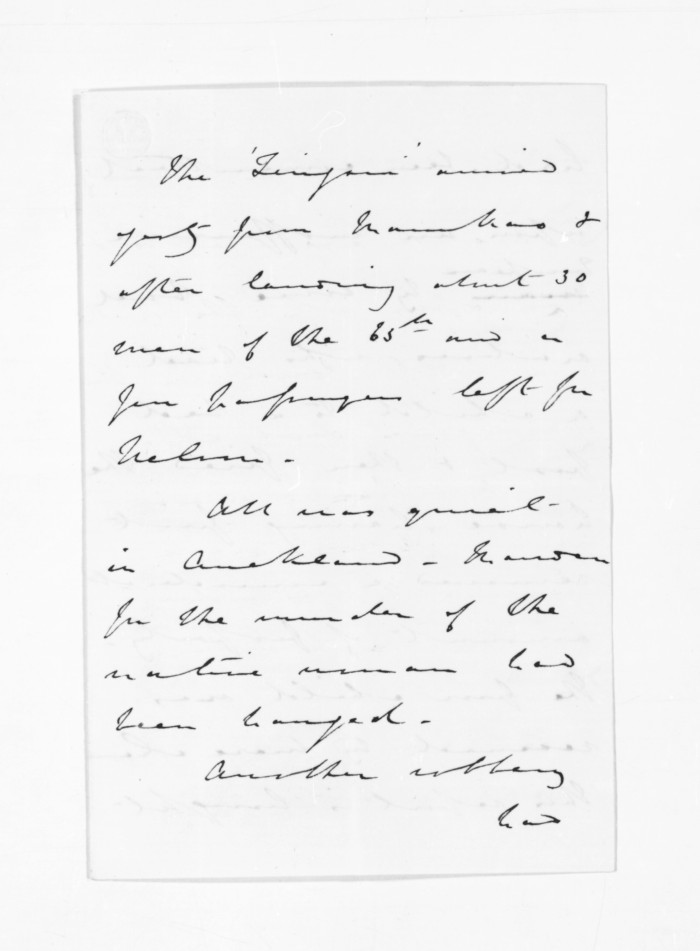 The 'Zingari' arrived
yesty from Manukao &
after landing about 30
men of the 65th and a
few passengers left for
Nelson -
All was quiet
in Auckland -
for the murder of the
native woman had
been hanged -
Another robbery
had